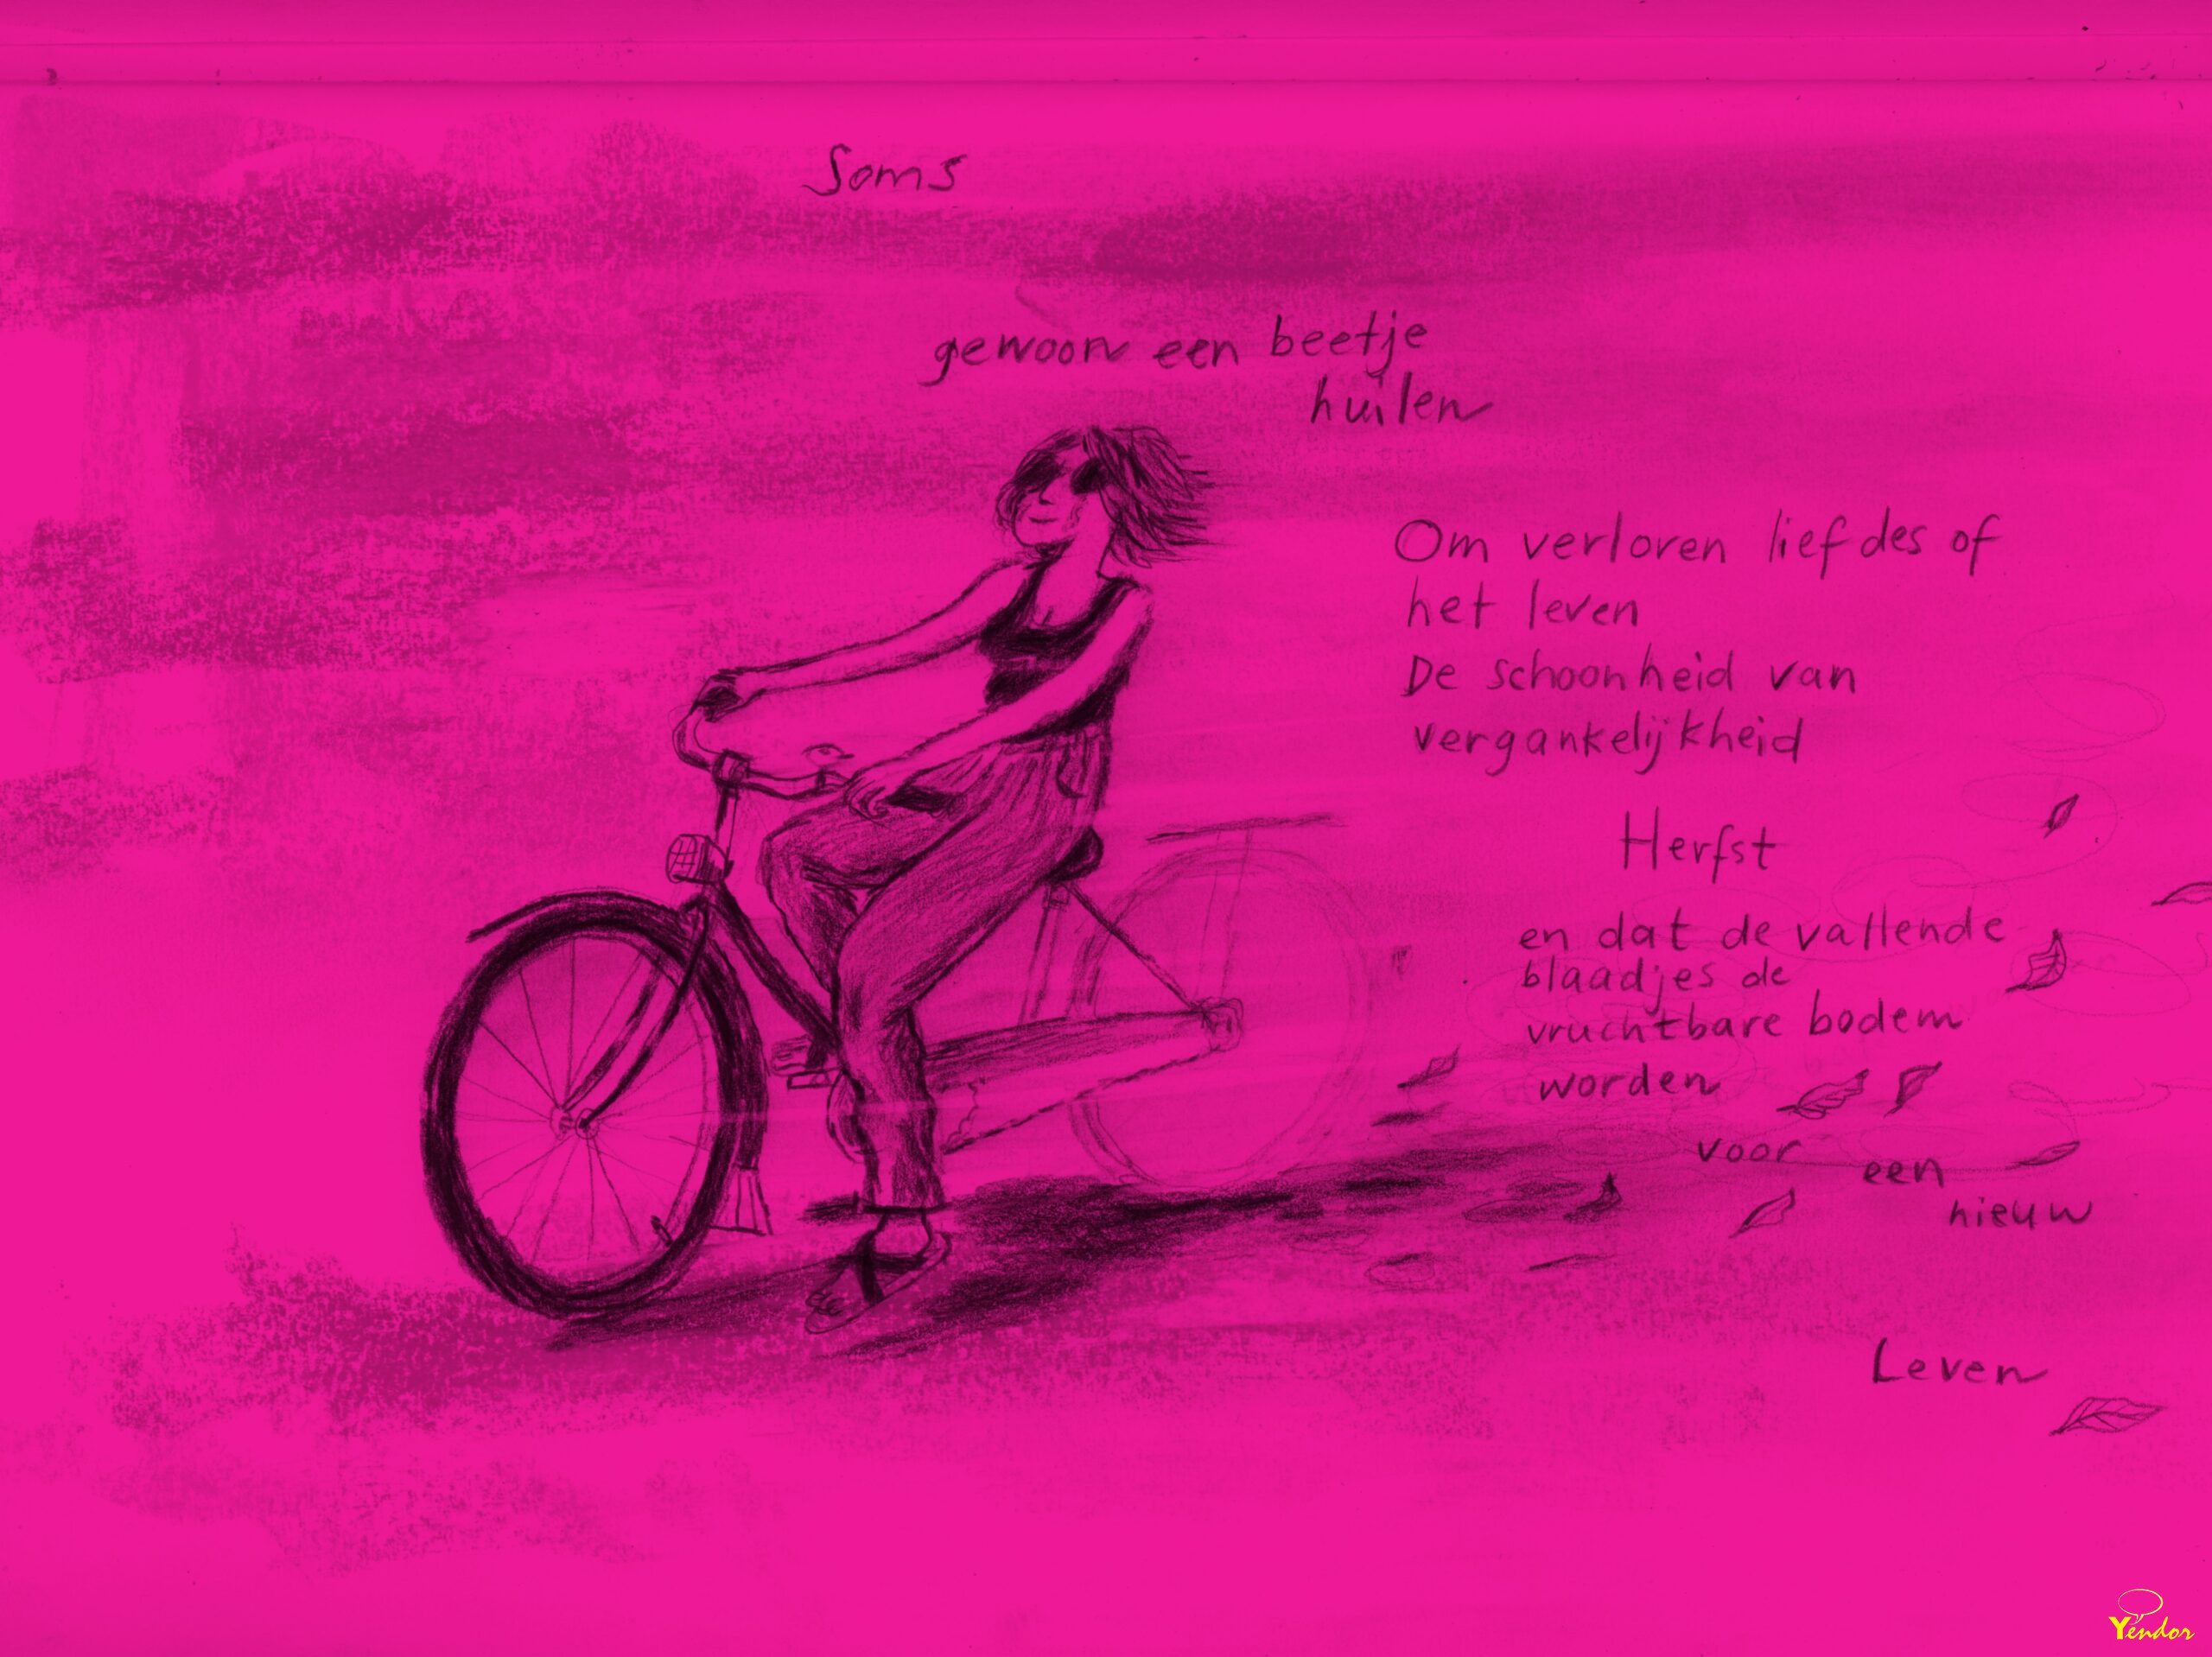 Soms
gewoon een beetje
huilen
Om verloren liefdes of
het leven
De schoonheid van
vergankelijkheid
Herfst
en dat de vallende
blaadjes de
vruchtbare bodem
worden
voor een
nieuw
Leven
Yendor